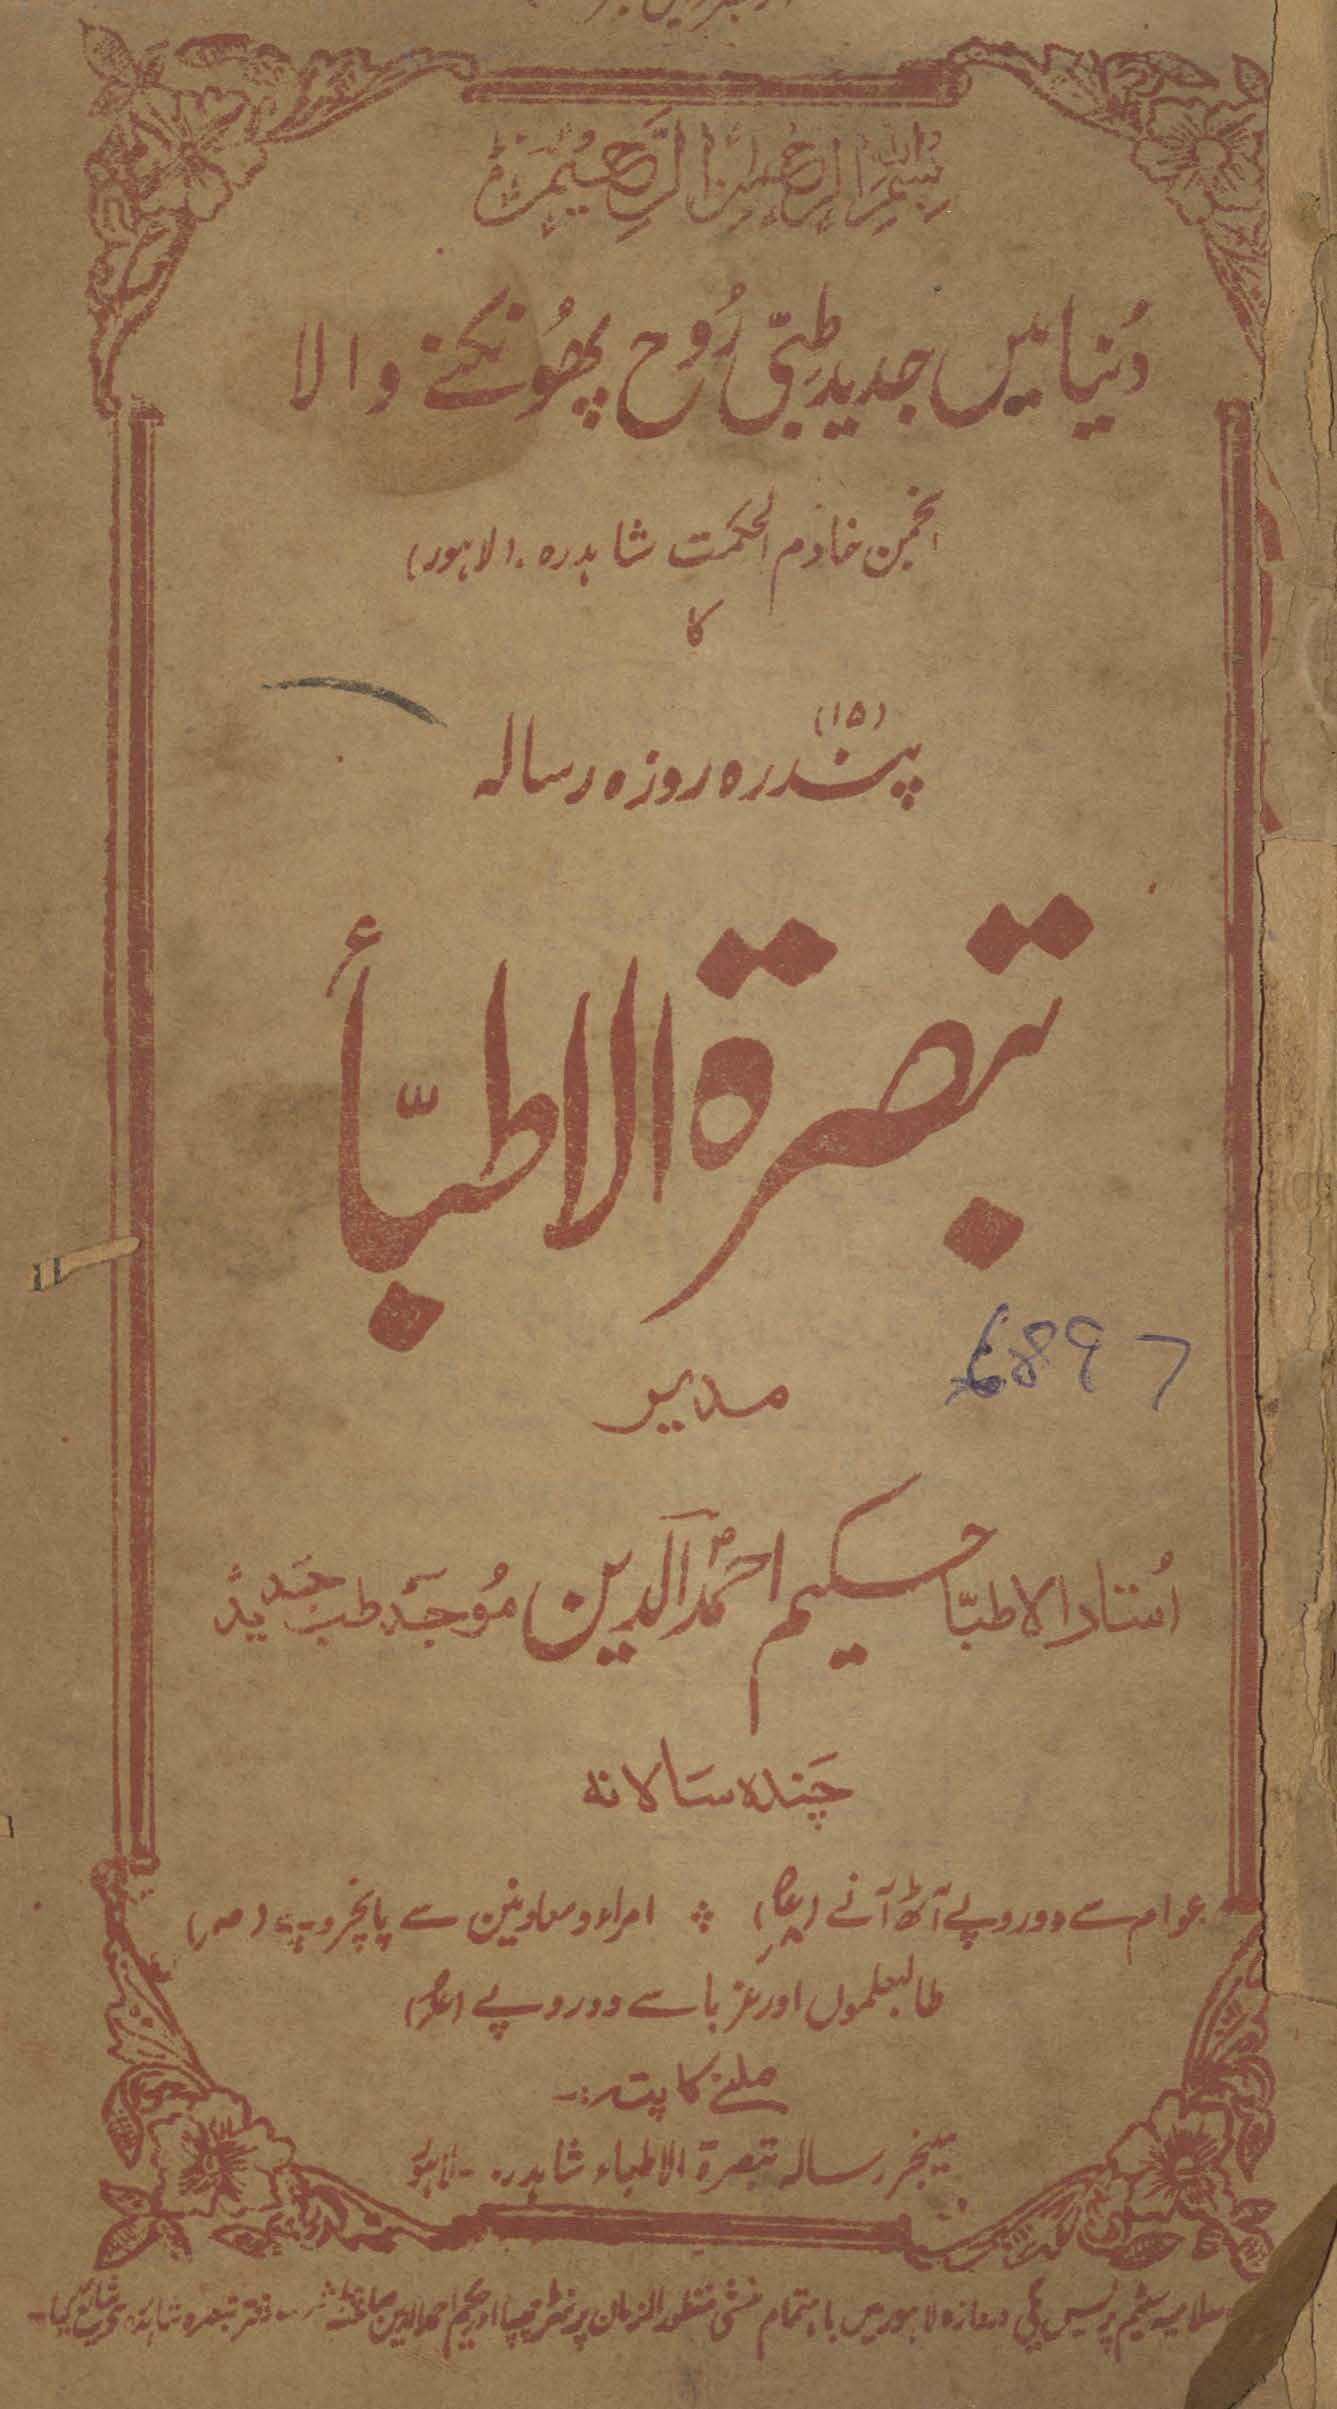 بسم اللہ الرحمٰن الرحیم
دُنیا میں جدید طِبّی رُوح پھُونکنے والا
انجمن خادم الحکمت شاہدرہ (لاہور)
کا
(۱۵)
پندرہ روزہ رسالہ
تبصرۃ الاطبّأ
6897
مدیر
اُستاد الاطبّا حکیم احمد الدین مُوجد طب جدید
چَندہ سَالانہ
عوام سے دو روپے آٹھ آنے ؞ امراء و معاونین سے پانچروپیہ
طالبعلموں اور غربا سے دو روپے
ملنے کا پتہ:-
مینجر رسالہ تبصرۃ الاطباء شاہدرہ - لاہور
سٹیم پریس دروازہ لاہور میں باہتمام منشی منظور الزمان پرنٹر چھپا اور حکیم احمد الدین دفتر تبصرہ شاہدرہ شائع کیا-